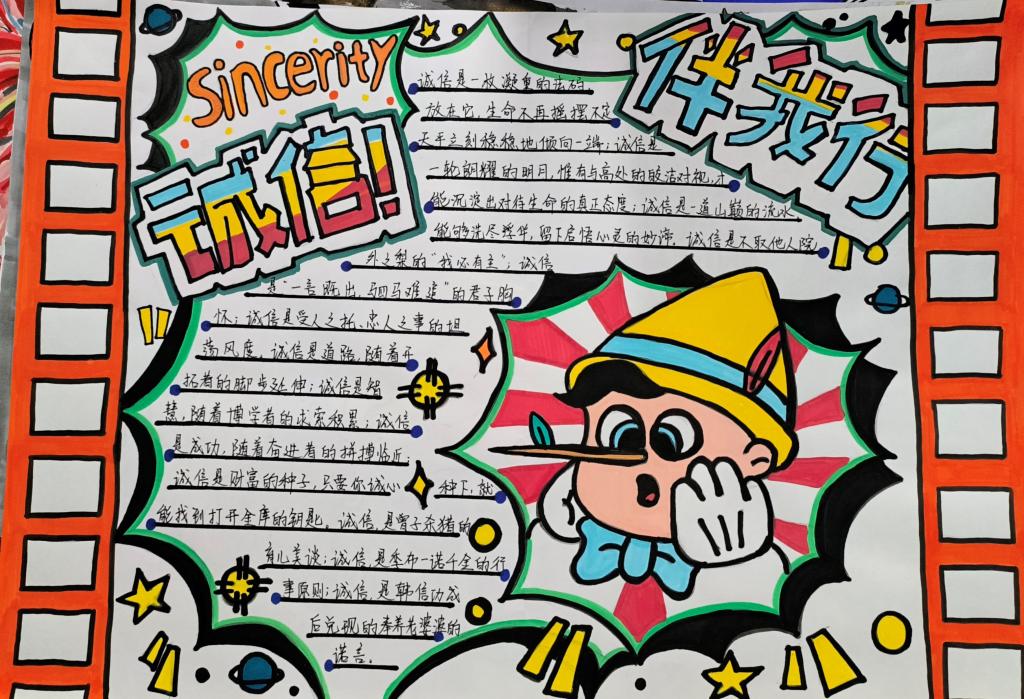 Sincerity
诚信!
伴我行
诚信是一枚凝重的砝码,
放在它,生命不再摇摆不定
天平立刻稳稳地倾向一端;诚信是
一轮朗耀的明月,惟有与高处的皎洁对视,才
能沉淀出对待生命的真正态度;诚信是一道山巅的流水,
能够洗尽浮华,留下启悟心灵的妙谛,诚信是不取他人院
外之梨的“我心有主”;诚信
是“一言既出,驷马难追”的君子胸
怀;诚信是受人之托、忠人之事的坦
荡风度。诚信是道路,随着开
拓者的脚步延伸;诚信是智
慧,随着博学者的求索积累;诚信
是成功,随着奋进者的拼搏临近;
诚信是财富的种子,只要你诚心种下,就
能找到打开金库的钥匙。诚信,是曾子杀猪的
育儿美谈;诚信,是季布一诺千金的行
事原则;诚信,是韩信功成
后兑现的奉养老婆婆的
诺言。